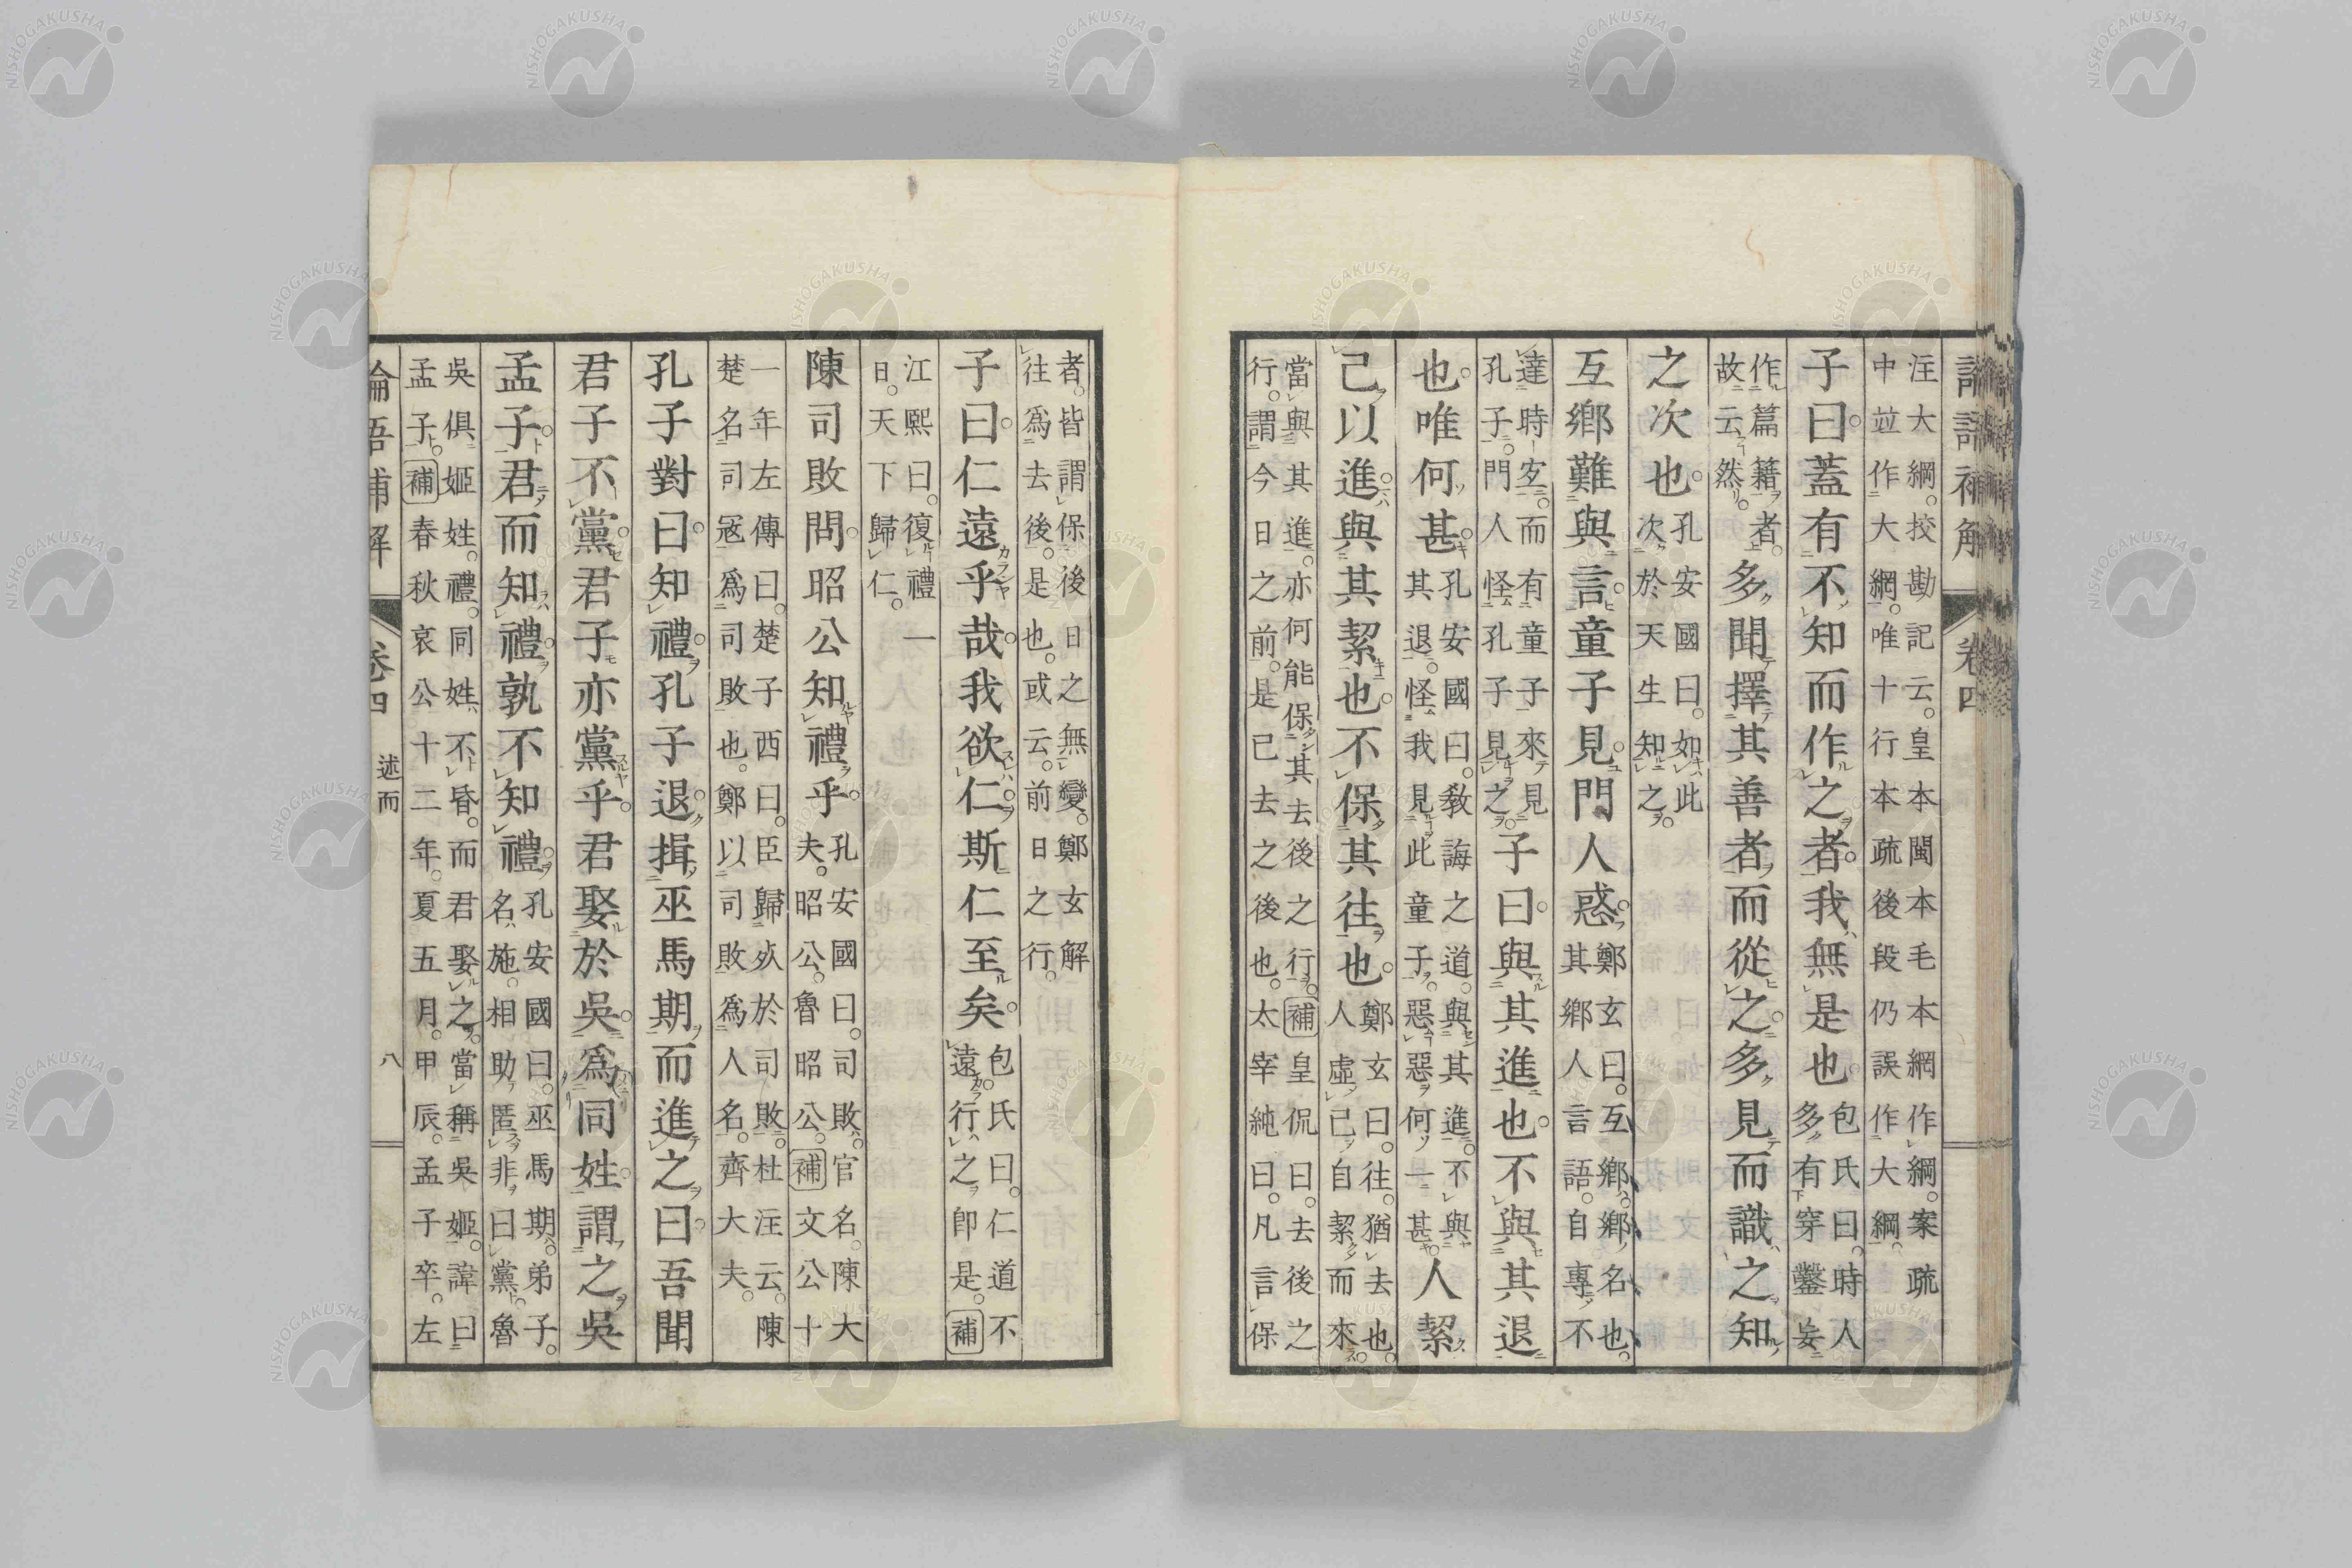 注大綱。挍勘記云。皇本閩本毛本綱作綱。案疏
中竝作大綱。唯十行本疏後段仍誤作大綱。
子曰。蓋有不知而作之者。我無是也。包氏曰。時人多有穿鑿妄
作篇籍者。故云然。多聞擇其善者。而從之。多見而識之。知
之次也。孔安國曰。如此次於天生知之。
互鄉難與言。童子見。門人惑。鄭玄曰。互鄉。鄉名也。其鄉人言語。自專不
達時宐。而有童子來見孔子。門人怪孔子見之。子曰。與其進也。不與其退
也。唯何甚。孔安國曰。敎誨之道。與其進。不與其退。怪我見此童子。惡惡何一甚。人絜
己以進。與其絜也。不保其往也。鄭玄曰。往。猶去也。人虛己自絜而來。
當與其進。亦何能保其去後之行。補皇侃曰。去後之
行。謂今日之前。是已去之後也。太宰純曰。凡言保
者。皆謂保後日之無變。鄭玄解
往爲去後。是也。或云。前日之行。
子曰。仁遠乎哉。我欲仁。斯仁至矣。包氏曰。仁道不遠。行之即是。補
江熙曰。復禮一
日。天下歸仁。
陳司敗問。昭公知禮乎。孔安國曰。司敗。官名。陳大夫。昭公。魯昭公。補文公十
一年左傳曰。楚子西曰。臣歸夙於司敗。杜注云。陳
楚名司冦爲司敗也。鄭以司敗爲人名。齊大夫。
孔子對曰。知禮。孔子退。揖巫馬期而進之曰。吾聞
君子不黨。君子亦黨乎。君娶於吳。爲同姓。謂之吳
孟子。君而知禮。孰不知禮。孔安國曰。巫馬期。弟子。名施。相助匿非曰黨。魯
吳俱姬姓。禮。同姓不昏。而君娶之。當稱吳姬。諱曰
孟子。補春秋哀公十二年。夏五月。甲辰。孟子卒。左
論語補解 卷四 述而 八